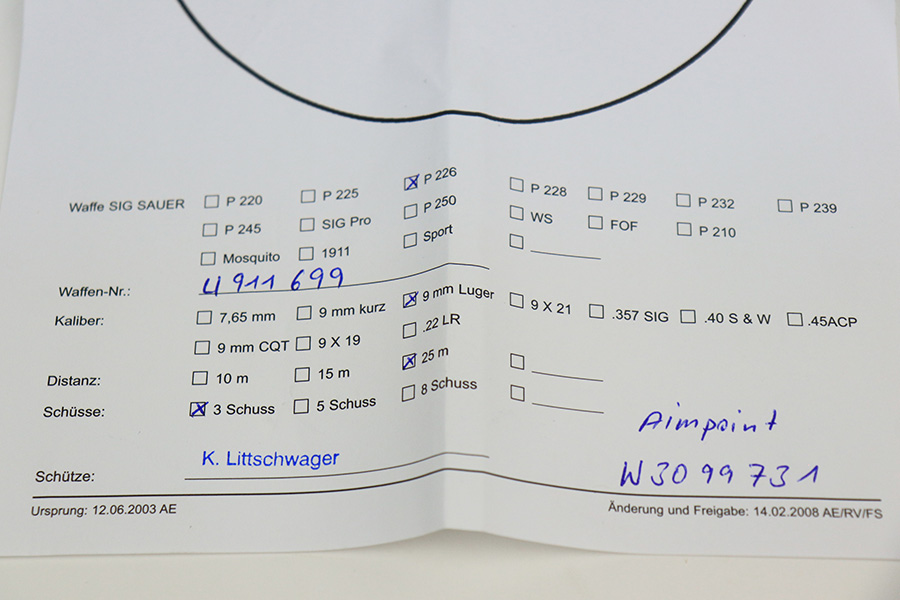 Waffe SIG SAUER ☐ P 220 ☐ P 225 ☒ P 226 ☐ P 228 ☐ P 229 ☐ P 232 ☐ P 239
☐ P 245 ☐ SIG Pro ☐ P 250 ☐ WS ☐ FOF ☐ P 210
☐ Mosquito ☐ 1911 ☐ Sport ☐
Waffen-Nr.: 4911 699
Kaliber: ☐ 7,65 mm ☐ 9 mm kurz ☒ 9 mm Luger ☐ 9 X 21 ☐ .357 SIG ☐ .40 S & W ☐ .45ACP
☐ 9 mm CQT ☐ 9 X 19 ☐ .22 LR
Distanz: ☐ 10 m ☐ 15 m ☒ 25 m ☐
Schüsse: ☒ 3 Schuss ☐ 5 Schuss ☐ 8 Schuss ☐
Aimpoint
Schütze: K. Littschwager W3099731
Ursprung: 12.06.2003 AE Änderung und Freigabe: 14.02.2008 AE/RV/FS